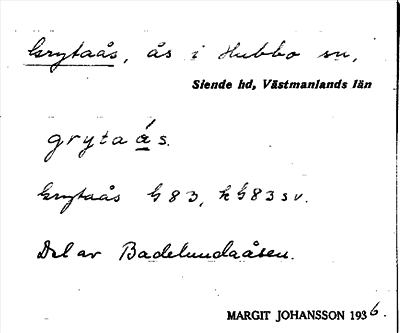 Grytaås, ås i Hubbo sn,
Siende hd, Västmanlands län
grytaá̱s.
Grytaås G 83, k G 83 sv.
Del av Badelundaåsen.
MARGIT JOHANSSON 1936.